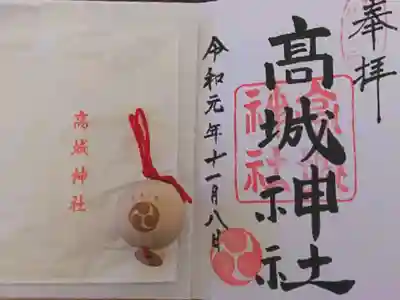 奉拝
高城神社
令和元年十一月八日
高城神社
高城神社